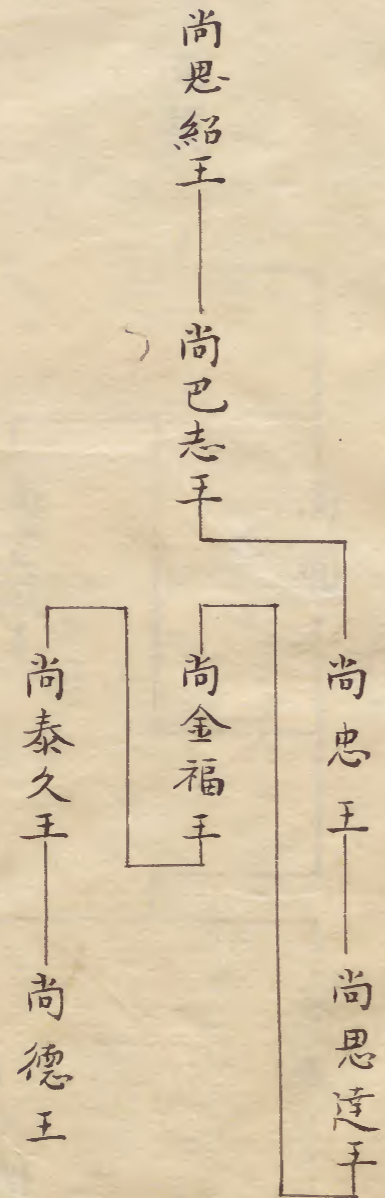 尚思紹王
尚巴志王
尚忠王
尚思達王
尚金福王
尚泰久王
尚德王